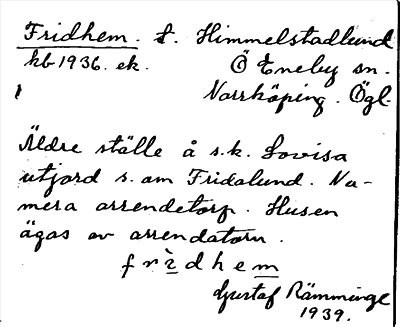 Fridhem. t. Himmelstadlund
kb 1936. ek. Ö Eneby sn.
Norrköping. Ögl.
Äldre ställe å s.k. Lovisa
utjord s. om Fridalund. Nu-
mera arrendetorp. Husen
ägas av arrendatorn.
frìdhem
Gustaf Rämminge
1939.